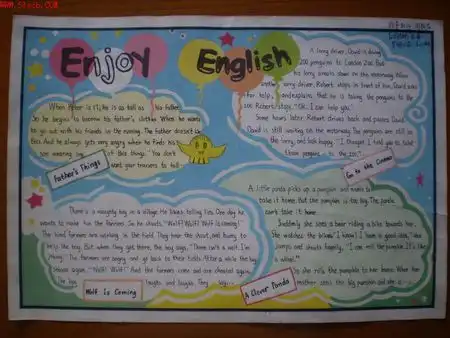 www.51scb.com
Enjoy English
When Peter is 17, he is as tall as his father.
So he begins to borrow his father's clothes. When he wants
to go out with his friends in the evening. The father doesn't like
this. And he always gets very angry when he finds his
son wearing any of his things. "You don't
want your trousers to fall
Father's Things
A lorry driver, David is driving
200 penguins to London Zoo. But
his lorry breaks down on the motorway. When
another lorry driver, Robert stops in front of him, David asks
for help, and explains that he is taking the penguins to the
zoo. Robert says, "OK. I can help you."
Some hours later Robert drives back and passes David.
David is still waiting on the motorway. The penguins are still in
the lorry, and look happy. "I thought I told you to take
those penguins to the zoo."
Go to the Cinema
There's a naughty boy in a village. He likes telling lies. One day he
wants to make fun the farmers. So he shouts, "Wolf! Wolf! Wolf is coming!"
The kind farmers are working in the field. They hear the shout, and hurry to
help the boy. But when they get there, the boy says, "There isn't a wolf. I'm
joking." The farmers are angry and go back to their fields. After a while the boy
shouts again, "Wolf! Wolf!" And the farmers come and are cheated again.
The boy laughs and laughs. They say,
Wolf Is Coming
A little panda picks up a pumpkin and wants to
take it home. But the pumpkin is too big. The panda
can't take it home.
Suddenly she sees a bear riding a bike towards her.
She watches the bike. "I know! I have a good idea." she
jumps and shouts happily, "I can roll the pumpkin. It's like
a wheel."
So she rolls the pumpkin to her home. When her
mother sees the big pumpkin, and she is
A Clever Panda